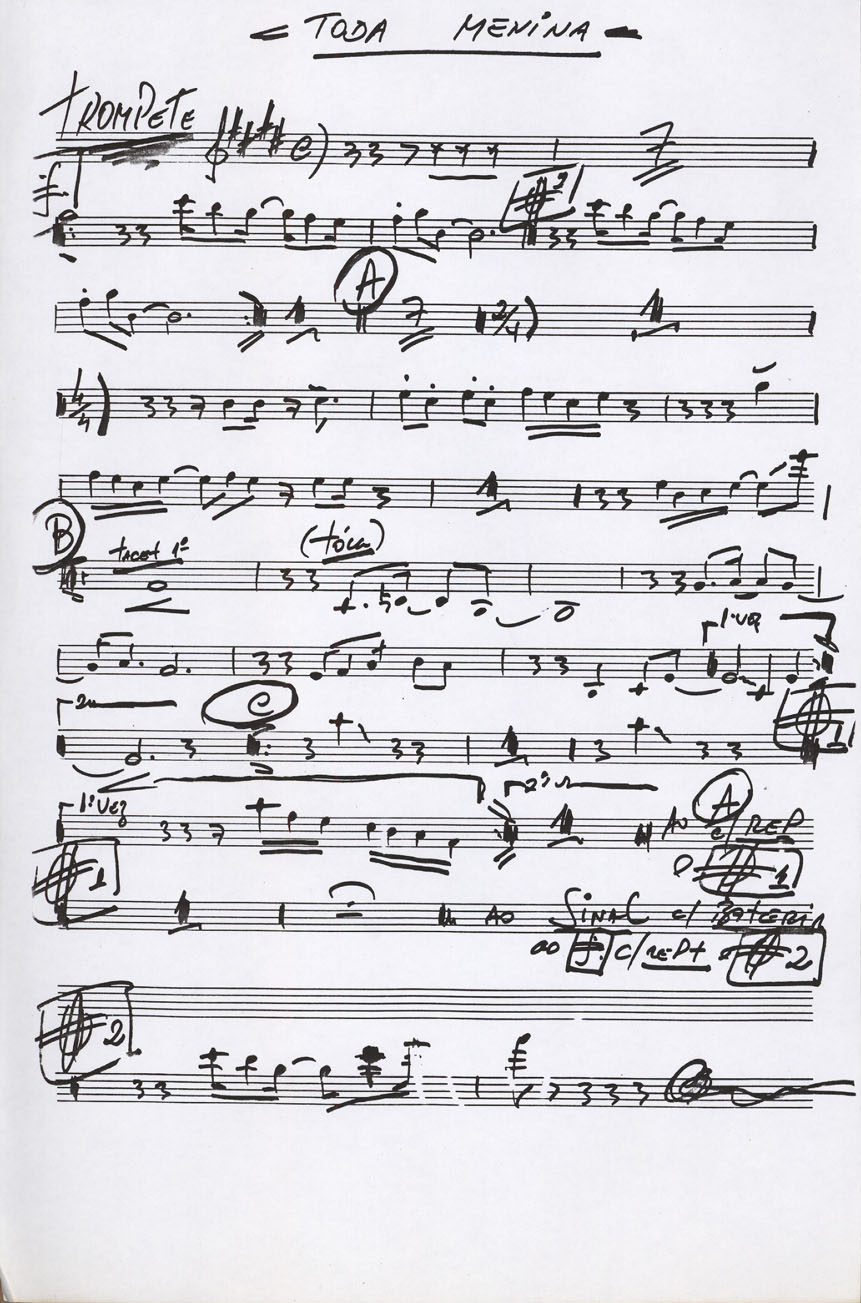 TODA MENINA
TROMPETE
7
2
A
1 7 2/4 1
4/4
1
B
tacet 1ª (tóca)
1ª VEZ
2ª
C
1
1
1ª VEZ 2ª
A
1 AO C/ REP
1
1
1 AO SINAL c/ BATERIA
ao C/ REPT 2
2